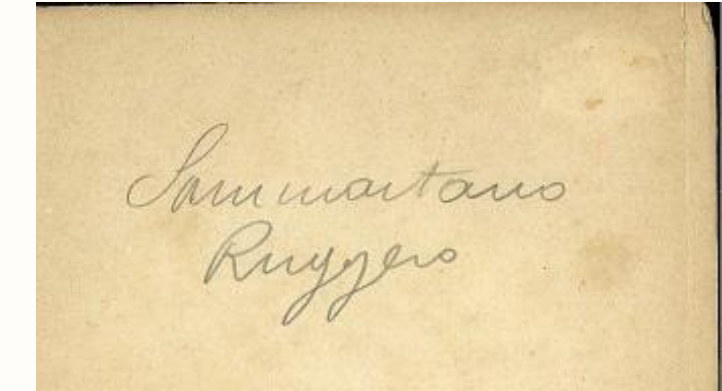 Sammartano
Ruggero